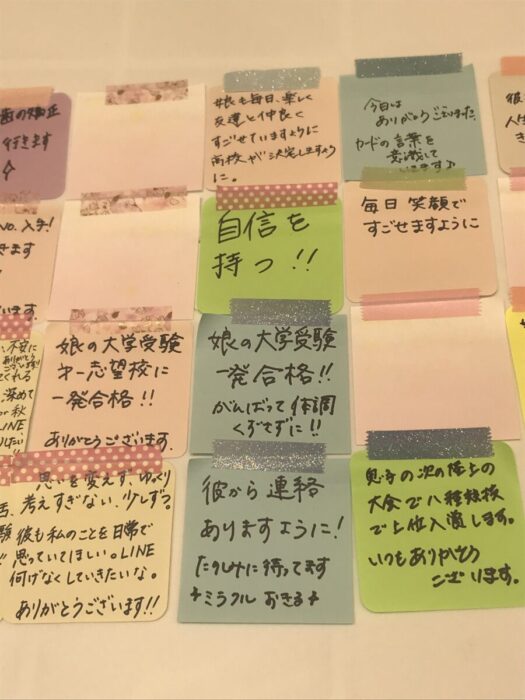 歯の矯正
行きます
娘も毎日、楽しく
友達と仲良く
すごせていますように
高校が決定しますよう
に。
今日は
ありがとうございました。
カードの言葉を
意識して
いきます♪
彼
人生
き
No. 入手!
きます
います
自信を
持つ!!
毎日 笑顔で
すごせますように
い、不安に
ありがとう
ございます!!
てくれる
深めて
が秋
LINE
りしたい
娘の大学受験
才一志望校に
一発合格!!
ありがとうございます
娘の大学受験
一発合格!!
がんばって体調
くずさずに!!
思いを変えず、ゆっくり
考えすぎない、少しずつ。
彼も私のことを日常で
思っていてほしい。LINE
何げなくしていきたいな。
ありがとうございます!!
彼から連絡
ありますように!
たのしみに待ってます
+ミラクル おきる+
息子の次の陸上の
大会で八種競技
で上位入賞します。
いつもありがとう
ございます。